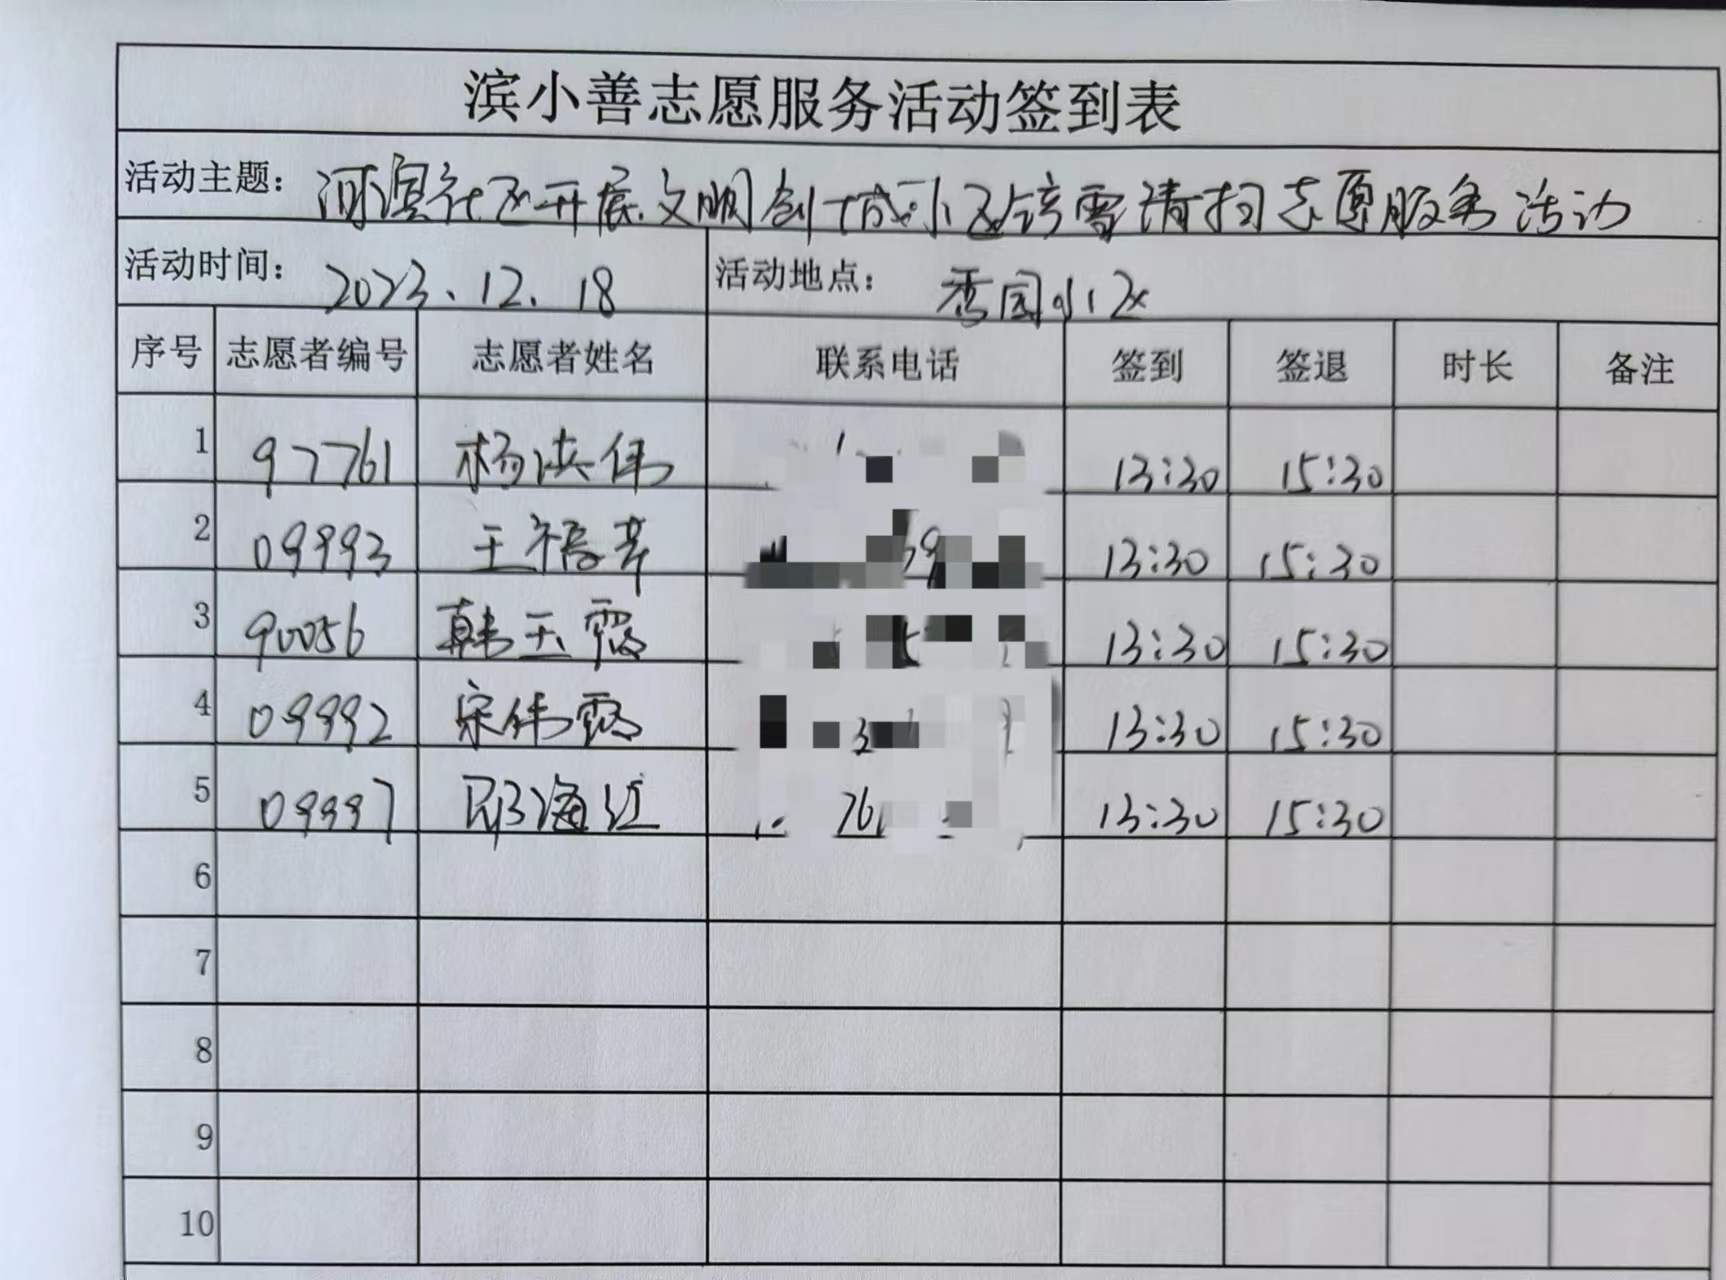 滨小善志愿服务活动签到表
活动主题：河滨社区开展文明创城小区铲雪清扫志愿服务活动
活动时间：2023.12.18 活动地点：秀园小区
序号 志愿者编号 志愿者姓名 联系电话 签到 签退 时长 备注
1 97761 杨洪伟 13:30 15:30
2 09993 王福芹 13:30 15:30
3 90056 韩玉霞 13:30 15:30
4 09992 宋伟霞 13:30 15:30
5 09997 邢海红 13:30 15:30
6
7
8
9
10